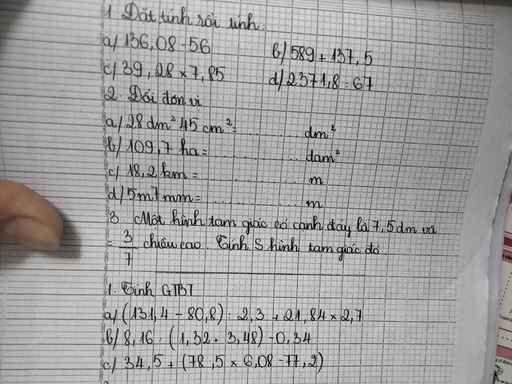 1 Đặt tính rồi tính:
a) 136,08-56
b) 589 + 137,5
c) 39,28 x 7,85
d) 2371,8 : 67
2. Đổi đơn vị
a) 28 dm² 45 cm² = ............ dm²
b) 109,7 ha = ............ dam²
c) 18,2 km = ............ m
d) 5m7mm = ............ m
3 Một hình tam giác có cạnh đáy là 7,5 dm và
= 3/7 chiều cao. Tính S hình tam giác đó
1. Tính GTBT
a) (131,4 - 80,8) : 2,3 + 21,84 x 2,7
b) 8,16 : (1,32 + 3,48) - 0,34
c) 34,5 + (78,5 x 6,08 - 77,2)